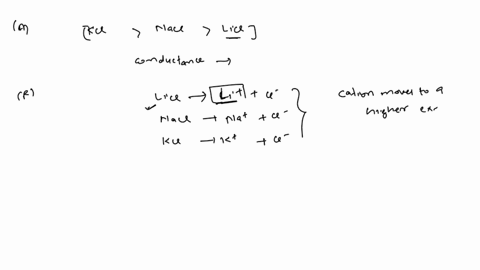 (A) [KCl > NaCl > LiCl]
conductance →
(R) LiCl → Li+ + Cl-
NaCl → Na+ + Cl-
KCl → K+ + Cl-
cation moves to a
higher ex